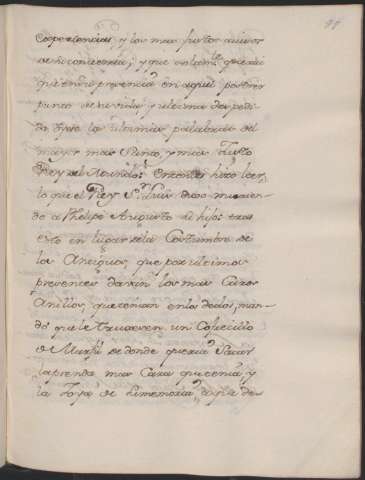 experiencias y los mas justos avisos
de su conciencia; y que
que en su presencia en aquel postrer
punto de su vida, y ultima despedi
da fuese la ultimas palabras del
mayor mas Santo, y mas Justo
Rey del Mundo. Entonces hizo leer
lo que el Rey Sn. Luis dixo murien-
do a Phelipe Augusto su hijo; tras
esto en lugar de la Costumbre de
los Antiguos, que por ultimos
presentes davan los mas Caros
Anillos, que tenian en los dedos, man-
dò que le truxesen un Cofrecillo
de Marfil de donde queria Sacar
la prenda mas Cara que tenia, y
la Joya de su memoria,